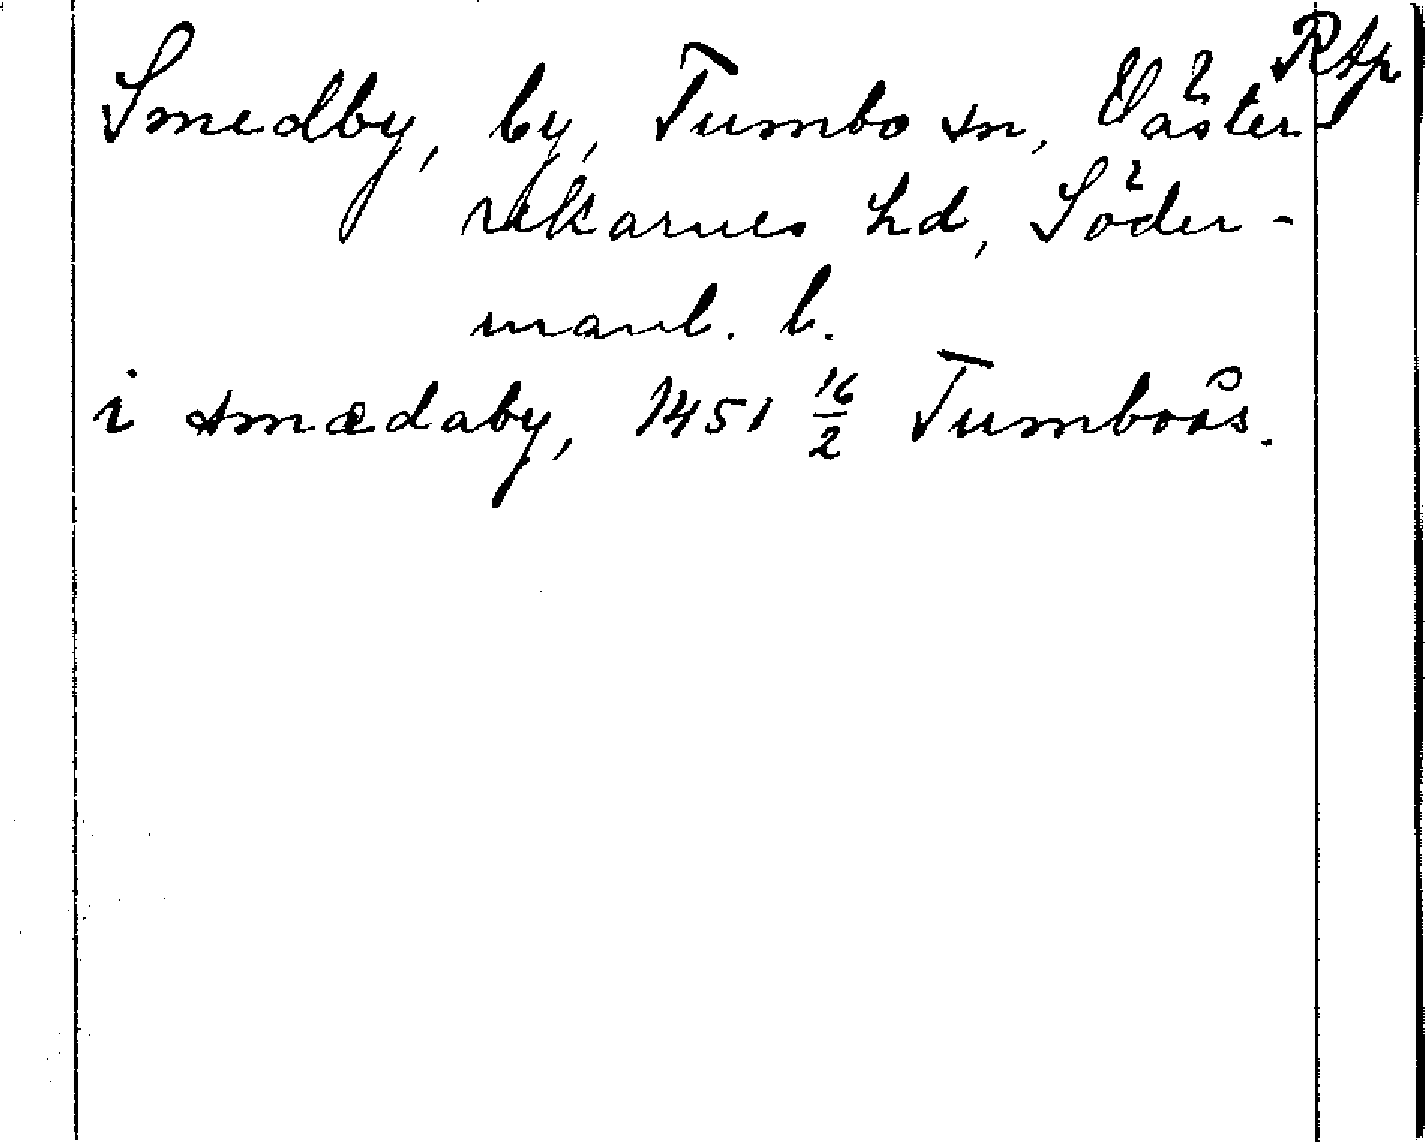 Rtp
Smedby, by, Tumbo sn, Väster-
rekarnes hd, Söder-
manl. l.
i smædaby, 1451 16/2 Tumboås.